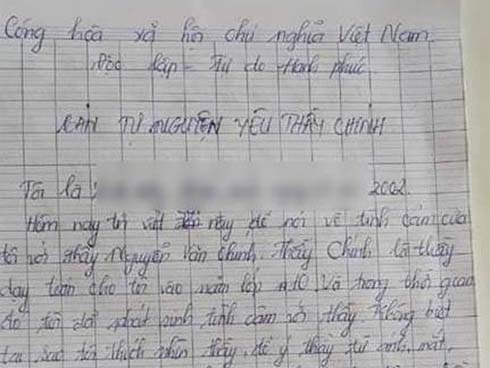 Cộng hòa xã hội chủ nghĩa Việt Nam
Độc lập - Tự do - Hạnh phúc
BẢN TỰ NGUYỆN YÊU THẦY CHINH
Tôi là 2002
Hôm nay tôi viết này để nói về tình cảm của
tôi với thầy Nguyễn Văn Chinh. Thầy Chinh là thầy
dạy toán cho tôi vào năm lớp A10. Và trong thời gian
đó tôi đã phát sinh tình cảm với thầy không biết
tại sao tôi thích nhìn thầy, để ý thầy từ ánh mắt,